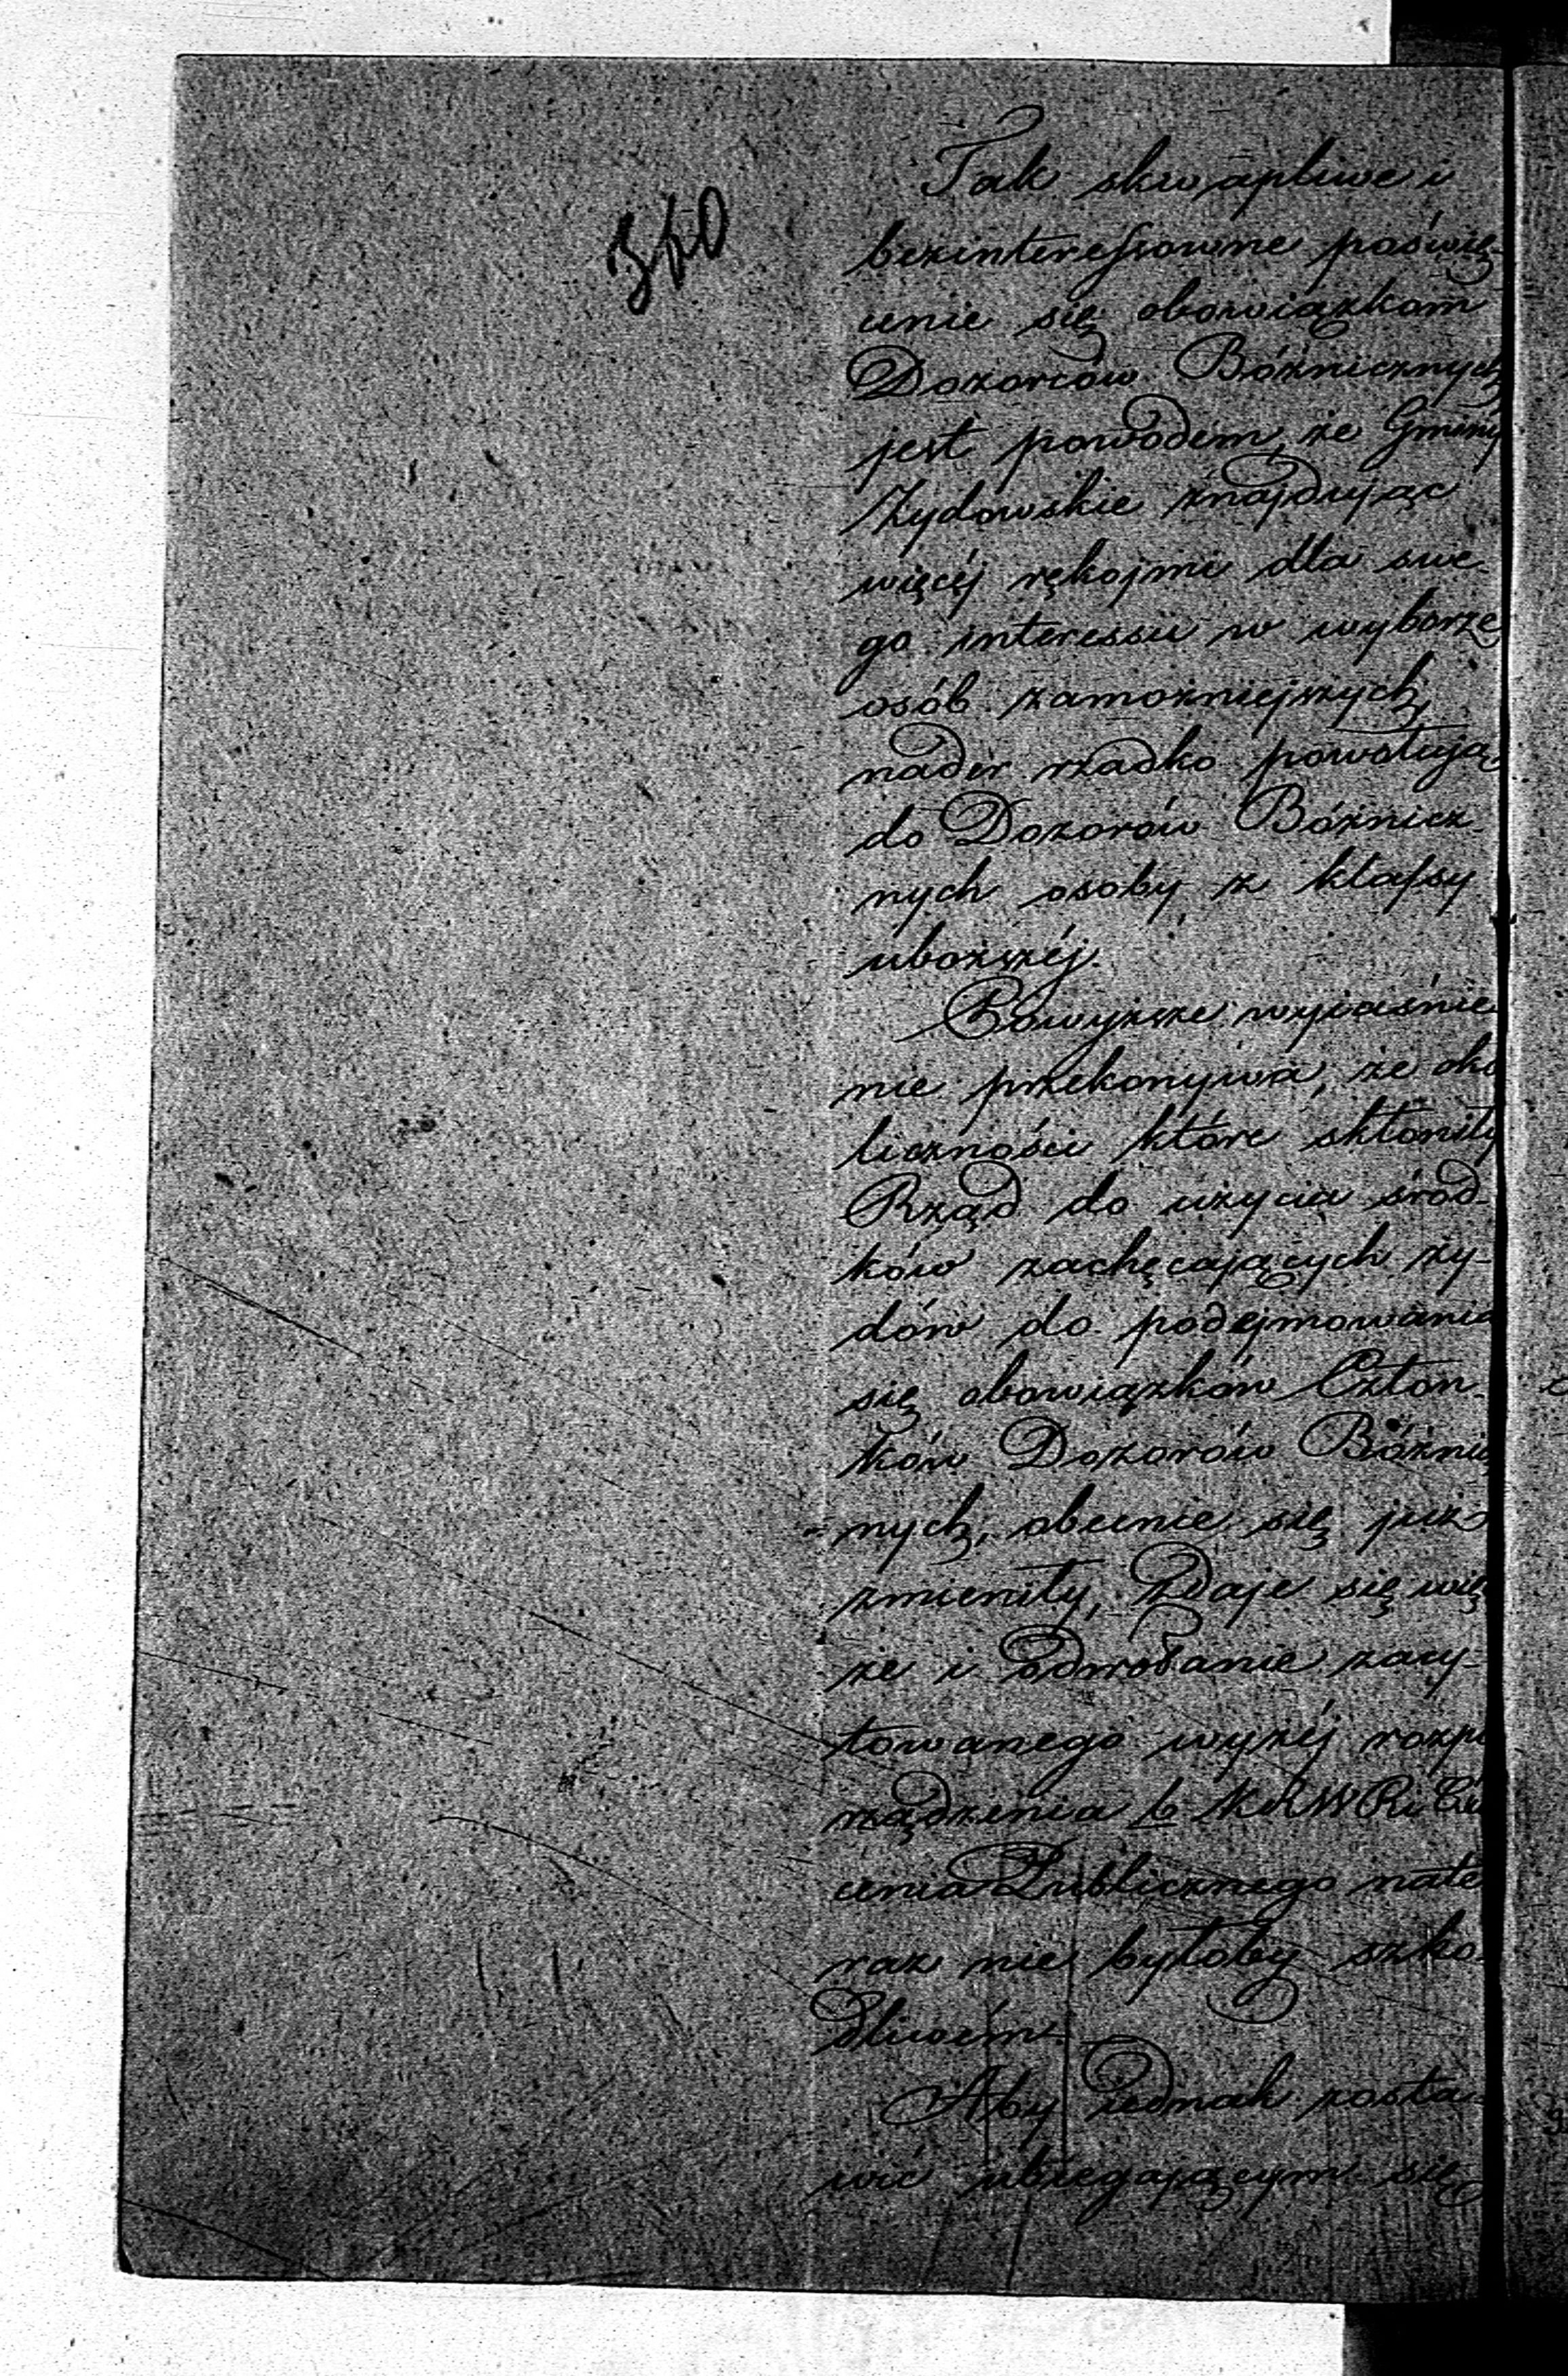 360
Tak skwapliwe i
bezinteressowne poświę-
cenie się obowiązkom
Dozorców Bóżnicznych
jest powodem, że Gminy
Żydowskie znajdując
więcéj rękojmi dla swe-
go interessu w wyborze
osób zamożniejszych,
nader rzadko powołują
do Dozorów Bóżnicz-
nych osoby z klassy
uboższéj.
Powyższe wyjaśnie-
nie przekonywa, że oko
liczności które skłoniły
Rząd do użycia środ-
ków zachęcających ży-
dów do podejmowania
się obowiązków Człon-
ków Dozorów Bóżnic
nych, obecnie się już
zmieniły, zdaje się więc
że i odwołanie zacy-
towanego wyżéj rozpo
rządzenia b. KRWR i Oświe
cenia Publicznego nate
raz nie byłoby szko-
dliwém.
Aby jednak zosta-
wić ubiegającym się